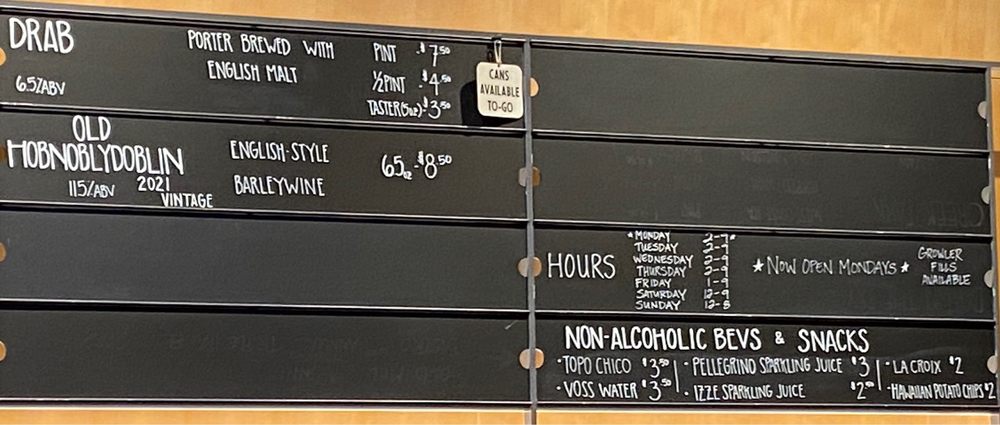 DRAB
6.5%ABV
PORTER BREWED WITH
ENGLISH MALT
PINT - $7.50
½PINT - $4.50
TASTER(5oz) - $3.50
CANS
AVAILABLE
TO-GO
OLD
HOBNOBLYDOBLIN
11.5%ABV 2021
VINTAGE
ENGLISH-STYLE
BARLEYWINE
6.5oz - $8.50
HOURS
*MONDAY 2-7*
TUESDAY 2-9
WEDNESDAY 2-9
THURSDAY 2-9
FRIDAY 1-9
SATURDAY 12-9
SUNDAY 12-8
★NOW OPEN MONDAYS★
GROWLER
FILLS
AVAILABLE
NON-ALCOHOLIC BEVS & SNACKS
·TOPO CHICO $3.50 | ·PELLEGRINO SPARKLING JUICE $3 | ·LA CROIX $2
·VOSS WATER $3.50 | ·IZZE SPARKLING JUICE $2.50 | ·HAWAIIAN POTATO CHIPS $2